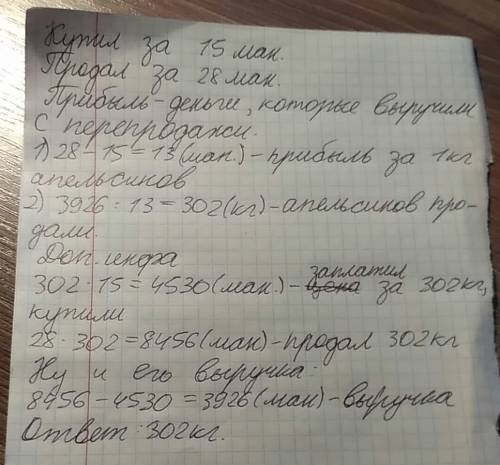 Купил за 15 ман.
Продал за 28 ман.
Прибыль - деньги, которые выручили
с перепродажи.
1) 28 - 15 = 13 (ман.) - прибыль за 1кг
апельсинов
2) 3926 : 13 = 302 (кг) - апельсинов про-
дали.
Доп. инфа
302 · 15 = 4530 (ман.) - цена заплатил за 302кг,
купили
28 · 302 = 8456 (ман) - продал 302кг
Ну и его выручка:
8456 - 4530 = 3926 (ман) - выручка
Ответ: 302кг.